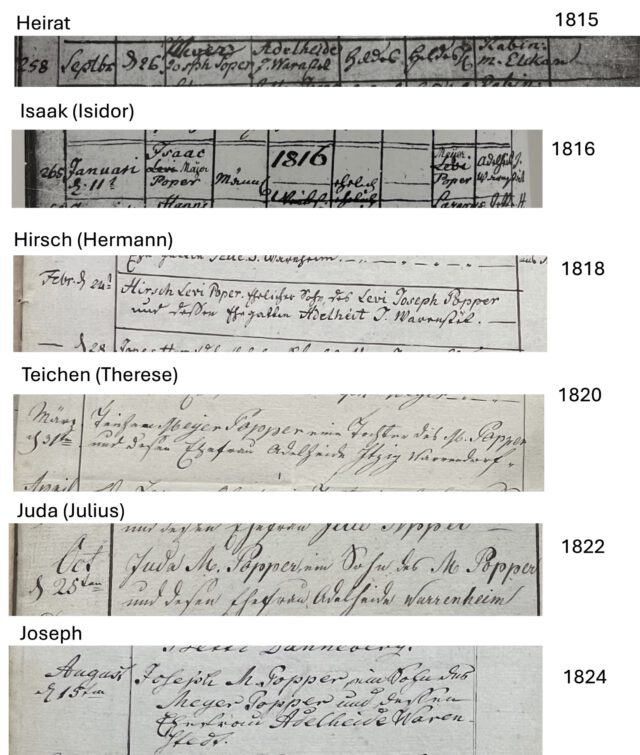 Heirat 1815
258 Septbr d 26 Meyer Joseph Poper Adelheide J. Waradel Hildes Hildes Rabin: m. Elckan
Isaak (Isidor)
1816
265 Januari d. 11t Isaac Levi Major Poper Männl 1816 ehrlich Meyer Levi Poper Adelheit J.
Hirsch (Hermann)
1818
Febr. d 24t Hirsch Levi Poper. Ehrlicher Sohn des Levi Joseph Popper
und dessen Ehegattin Adelheit J. Warrenstät.
Teichen (Therese)
1820
März Teichen Meyer Popper eine Tochter des M. Popper
d 31ten und dessen Ehefrau Adelheide Itzig Warrendorf.
April
Juda (Julius)
und dessen Ehefrau Popper
1822
Oct Juda M. Popper, ein Sohn des M Popper
d 25ten und dessen Ehefrau, Adelheide Warrenheim
Joseph
Danneberg.
1824
August Joseph M. Popper ein Sohn des
d 15ten Meyer Popper und dessen
Ehefrau Adelheide Waren-
stedt.